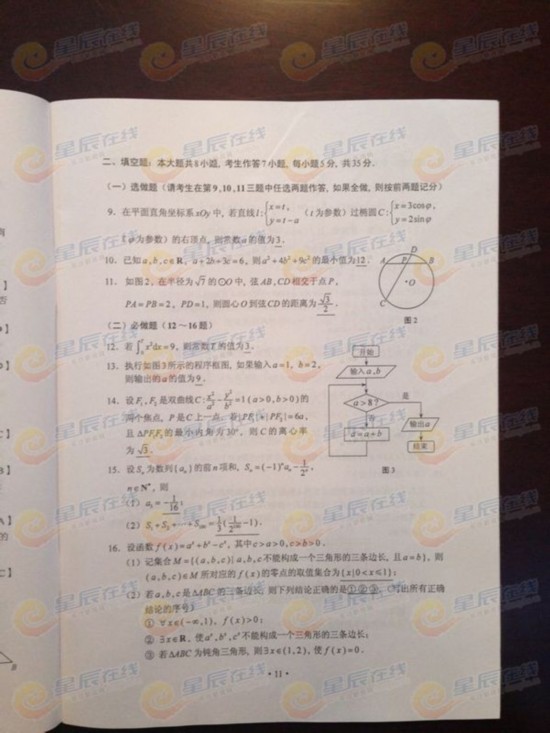 二、填空题：本大题共8小题，考生作答7小题，每小题5分，共35分．
（一）选做题（请考生在第9,10,11三题中任选两题作答，如果全做，则按前两题记分）
9．在平面直角坐标系xOy中，若直线l：{x=t, y=t-a （t为参数）过椭圆C：{x=3cosφ, y=2sinφ
（φ为参数）的右顶点，则常数a的值为3．
10．已知a,b,c∈R，a+2b+3c=6，则a²+4b²+9c²的最小值为12．
11．如图2，在半径为√7的⊙O中，弦AB,CD相交于点P，
PA=PB=2，PD=1，则圆心O到弦CD的距离为√3/2．
A P D B
•O
C
图2
（二）必做题（12～16题）
12．若∫₀ᵀx²dx=9，则常数T的值为3．
13．执行如图3所示的程序框图，如果输入a=1，b=2，
则输出的a的值为9．
14．设F₁,F₂是双曲线C：x²/a²-y²/b²=1(a>0,b>0)的
两个焦点，P是C上一点．若|PF₁|+|PF₂|=6a，
且△PF₁F₂的最小内角为30°，则C的离心率
为√3．
开始
输入a,b
a>8？
是
否
a=a+b
输出a
结束
图3
15．设Sₙ为数列{aₙ}的前n项和，Sₙ=(-1)ⁿaₙ-1/2ⁿ，
n∈N*，则
（1）a₃=-1/16；
（2）S₁+S₂+…+S₁₀₀=1/3(1/2¹⁰⁰-1)．
16．设函数f(x)=aˣ+bˣ-cˣ，其中c>a>0,c>b>0．
（1）记集合M={(a,b,c)|a,b,c不能构成一个三角形的三条边长，且a=b}，则
(a,b,c)∈M所对应的f(x)的零点的取值集合为{x|0<x≤1}；
（2）若a,b,c是△ABC的三条边长，则下列结论正确的是①②③．（写出所有正确
结论的序号）
① ∀x∈(-∞,1)，f(x)>0；
② ∃x∈R，使aˣ,bˣ,cˣ不能构成一个三角形的三条边长；
③ 若△ABC为钝角三角形，则∃x∈(1,2)，使f(x)=0．
·11·
星辰在线